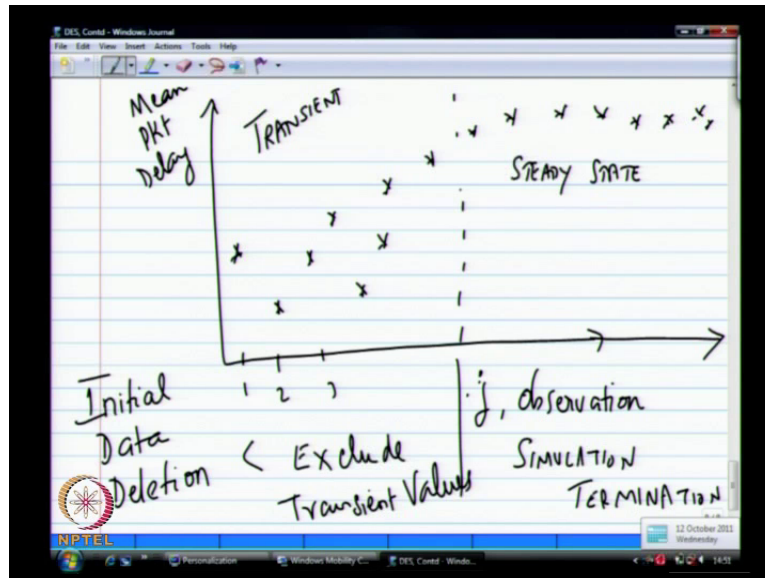 DES, Contd - Windows Journal
File Edit View Insert Actions Tools Help
Mean
PKT
Delay
TRANSIENT
STEADY STATE
1 2 3
j, observation
Initial
Data
Deletion < Exclude
Transient Values
SIMULATION
TERMINATION
NPTEL
12 October 2011
Wednesday
Personalization
Windows Mobility C...
DES, Contd - Windo...
14:51